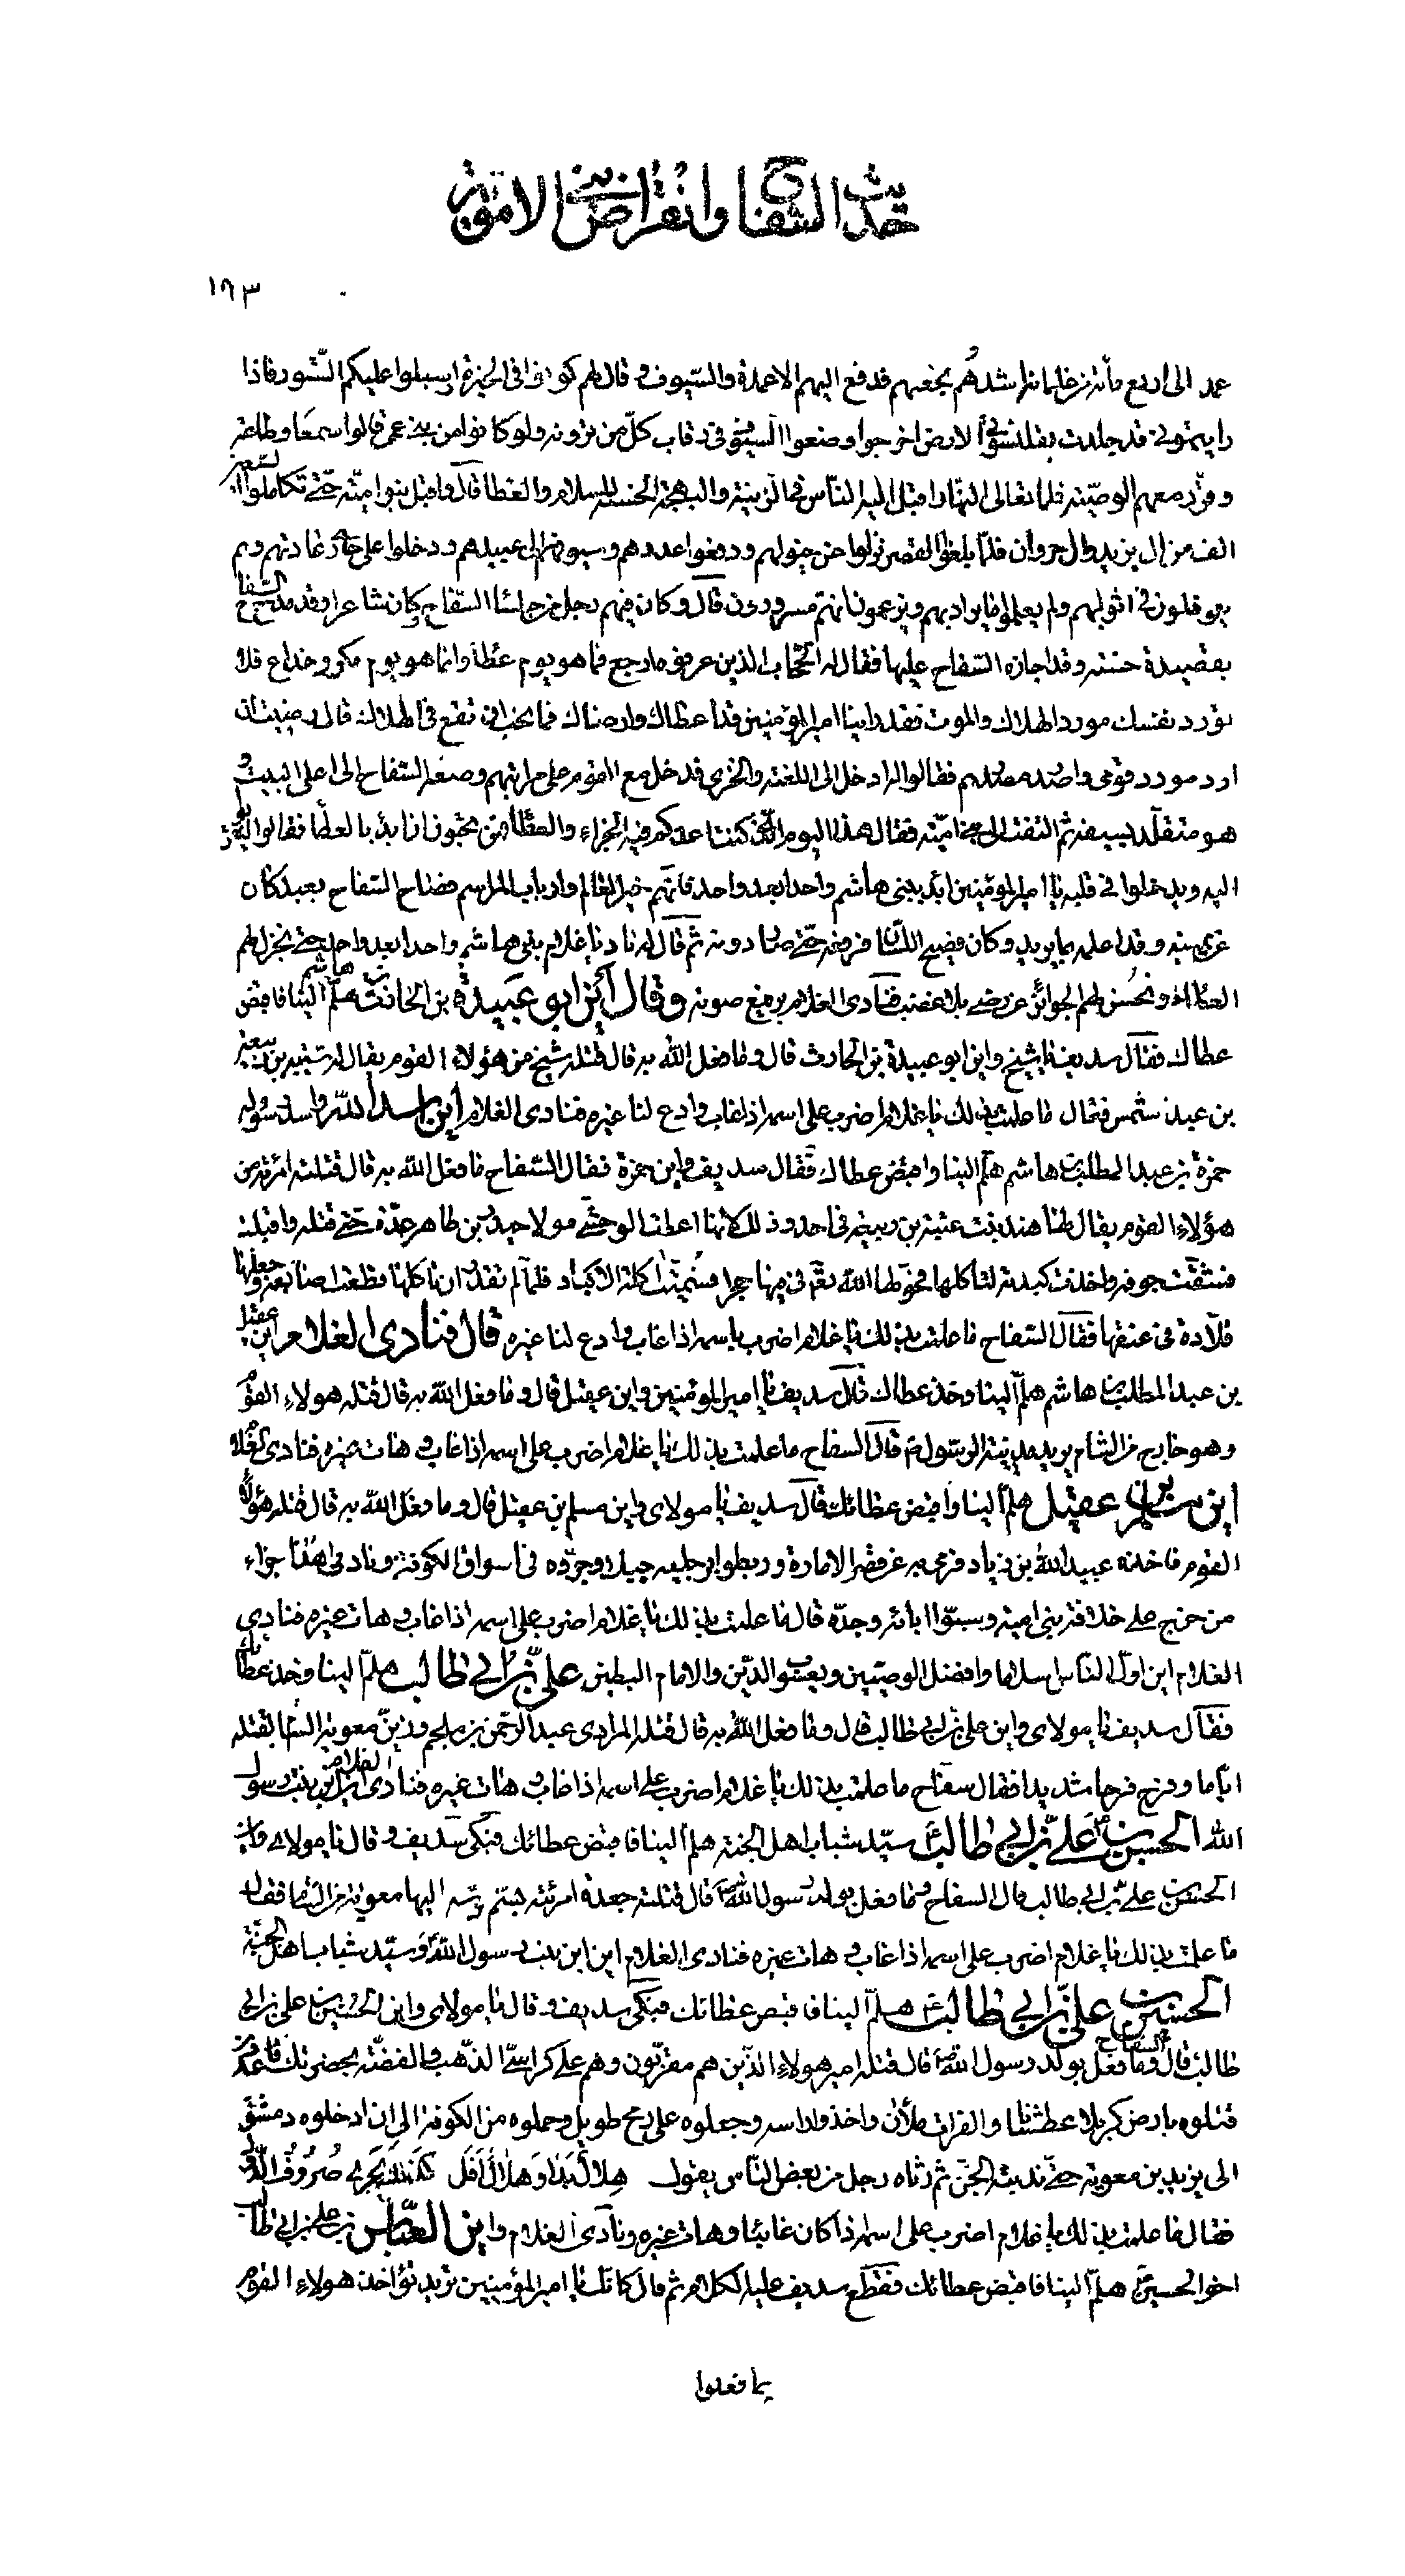 حديث السفاح وانقراض بني الاموية
١٩٣
عمد الى اربع مأة من غلمانه اشدهم بجمعهم فدفع اليهم الاعمدة والسيوف وقال لهم كونوا في الحيرة واسبلوا عليكم الستور فاذا
رايتموني قد جلدت بقلنسوتي الارض اخرجوا وضعوا السيوف في رقاب كل من ترونه ولو كانوا من بني عمي قالوا سمعا وطاعة
وقرر معهم الوصية فلما تعالى النهار اقبل اليه الناس في الزينة والبهجة الحسنة للسلام والعطا قال واقبل بنوا امية حتى تكاملوا سبعين
الف من ال يزيد وال مروان فلما بلغوا القصر نزلوا عن خيولهم ودفعوا عددهم وسيوفهم الى عبيدهم ودخلوا على جاري عادتهم وهم
يرفلون في اثوابهم ولم يعلموا ما يراد بهم ويزعمون انهم مسرورون قال وكان فيهم رجل من جلسا السفاح وكان شاعرا وقد مدح السفاح
بقصيدة حسنة وقد اجازه السفاح عليها فقال له الحجاب الذين عرفوه ارجع فما هو يوم عطا وانما هو يوم مكر وخداع فلا
تورد نفسك مورد الهلاك والموت فقد راينا امير المؤمنين قد اعطاك وارضاك فما نحب ان تقع في الهلاك قال رضيت ان
ارد مورد قومي واصدر مصدرهم فقالوا له ادخل الى اللعنة والخزي فدخل مع القوم على مراتبهم وصعد السفاح الى اعلى البيت و
هو متقلد بسيفه ثم التفت الى بني امية فقال هذا اليوم الذي كنت اعدكم فيه الجزاء والعطا فمن تحبون ان ابدء بالعطا فقالوا ليتقربوا
اليه ويدخلوا في قلبه يا امير المؤمنين ابدء ببني هاشم واحدا بعد واحد فانهم خير العالم وارباب المراسم فصاح السفاح بعبد كان
عن يمينه وقد اعلمه بما يريد وكان فصيح اللسان ثم قال له ناد يا غلام بني هاشم واحدا بعد واحد حتى نجزل لهم
العطاء ونحسن لهم الجوائز فنادى الغلام برفيع صوته وقال اين ابو عبيدة بن الحارث بن هاشم هلم الينا فاقبض
عطاك فقال سديف يا شيخ واين ابو عبيدة بن الحارث قال وما فعل الله به قال قتله شيخ من هؤلاء القوم يقال له شيبة بن ربيعة
بن عبد شمس فقال ما علمت بذلك يا غلام اضرب على اسمه اذا غاب وادع لنا غيره فنادى الغلام اين اسد الله واسد رسوله
حمزة بن عبد المطلب بن هاشم هلم الينا واقبض عطاك فقال سديف واين حمزة فقال السفاح ما فعل الله به قال قتلته امرئة من
هؤلاء القوم يقال لها هند بنت عتبة بن ربيعة في احد وذلك لانها اعطت الوحشي مولا جبير بن طاهر عدة حتى قتله واقبلت
فشقت جوفه واخذت كبده لتاكلها فحولها الله تع في فيها حجرا فسميت اكلة الاكباد فلما لم تقدر ان تاكلها قطعت اصابعه وجعلتها
قلادة في عنقها فقال السفاح ما علمت بذلك يا غلام اضرب باسمه اذا غاب وادع لنا غيره قال فنادى الغلام اين عقيل
بن عبد المطلب بن هاشم هلم الينا وخذ عطاك قال سديف يا امير المؤمنين واين عقيل قال وما فعل الله به قال قتله هولاء القوم
وهو خارج من الشام يريد مدينة الرسول ص قال السفاح ما علمت بذلك يا غلام اضرب على اسمه اذا غاب وهات غيره فنادى الغلام
اين مسلم بن عقيل هلم الينا واقبض عطائك قال سديف يا مولاى واين مسلم بن عقيل قال وما فعل الله به قال قتله هؤلاء
القوم فاخذه عبيد الله بن زياد فرمى به عن قصر الامارة وربطوا برجليه حبلا وجروه في اسواق الكوفة ونادى هذا جزاء
من خرج على خلافة بني امية وسبوا ابائه وجده قال ما علمت بذلك يا غلام اضرب على اسمه اذا غاب وهات غيره فنادى
الغلام اين اول الناس اسلاما وافضل الوصيين ويعسوب الدين والامام البطين علي بن ابي طالب هلم الينا وخذ عطائك
فقال سديف يا مولاى واين علي بن ابي طالب قال وما فعل الله به قال قتله المرادى عبد الرحمن بن ملجم وزين معوية الشام لقتله
اياما وفرح فرحا شديدا فقال سفاح ما علمت بذلك يا غلام اضرب على اسمه اذا غاب وهات غيره فنادى الغلام اين ابن بنت رسول
الله الحسن بن علي بن ابي طالب سيد شباب اهل الجنة هلم الينا فاقبض عطائك فبكى سديف وقال يا مولاى واين
الحسن بن علي بن ابي طالب قال السفاح وما فعل بولد رسول الله قال قتلته جعدة امرئته بسم دسه اليها معوية من الشام فقال
ما علمت بذلك يا غلام اضرب على اسمه اذا غاب وهات غيره فنادى الغلام اين ابن بنت رسول الله وسيد شباب اهل الجنة
الحسين بن علي بن ابي طالب هلم الينا فاقبض عطائك فبكى سديف وقال يا مولاى واين الحسين بن علي بن ابي
طالب قال السفاح وما فعل بولد رسول الله قال قتله امير هولاء الذين هم مقربون وهم على كراسي الذهب والفضة بحضرتك
قتلوه بارض كربلا عطشانا والفرات ملأن واخذوا راسه وجعلوه على رمح طويل وحملوه من الكوفة الى ان ادخلوه دمشق
الى يزيد بن معوية حتى ندبته الجن ثم رثاه رجل من بعض الناس يقول هلال بدا وهلال افل كذلك تجري صروف الدول
فقال ما علمت بذلك يا غلام اضرب على اسمه اذا كان غائبا وهات غيره ونادى الغلام واين العباس بن علي بن ابي طالب
اخو الحسين هلم الينا فاقبض عطائك فقطع سديف عليه الكلام ثم قال كانك يا امير المؤمنين تريد تؤاخذ هولاء القوم
بما فعلوا